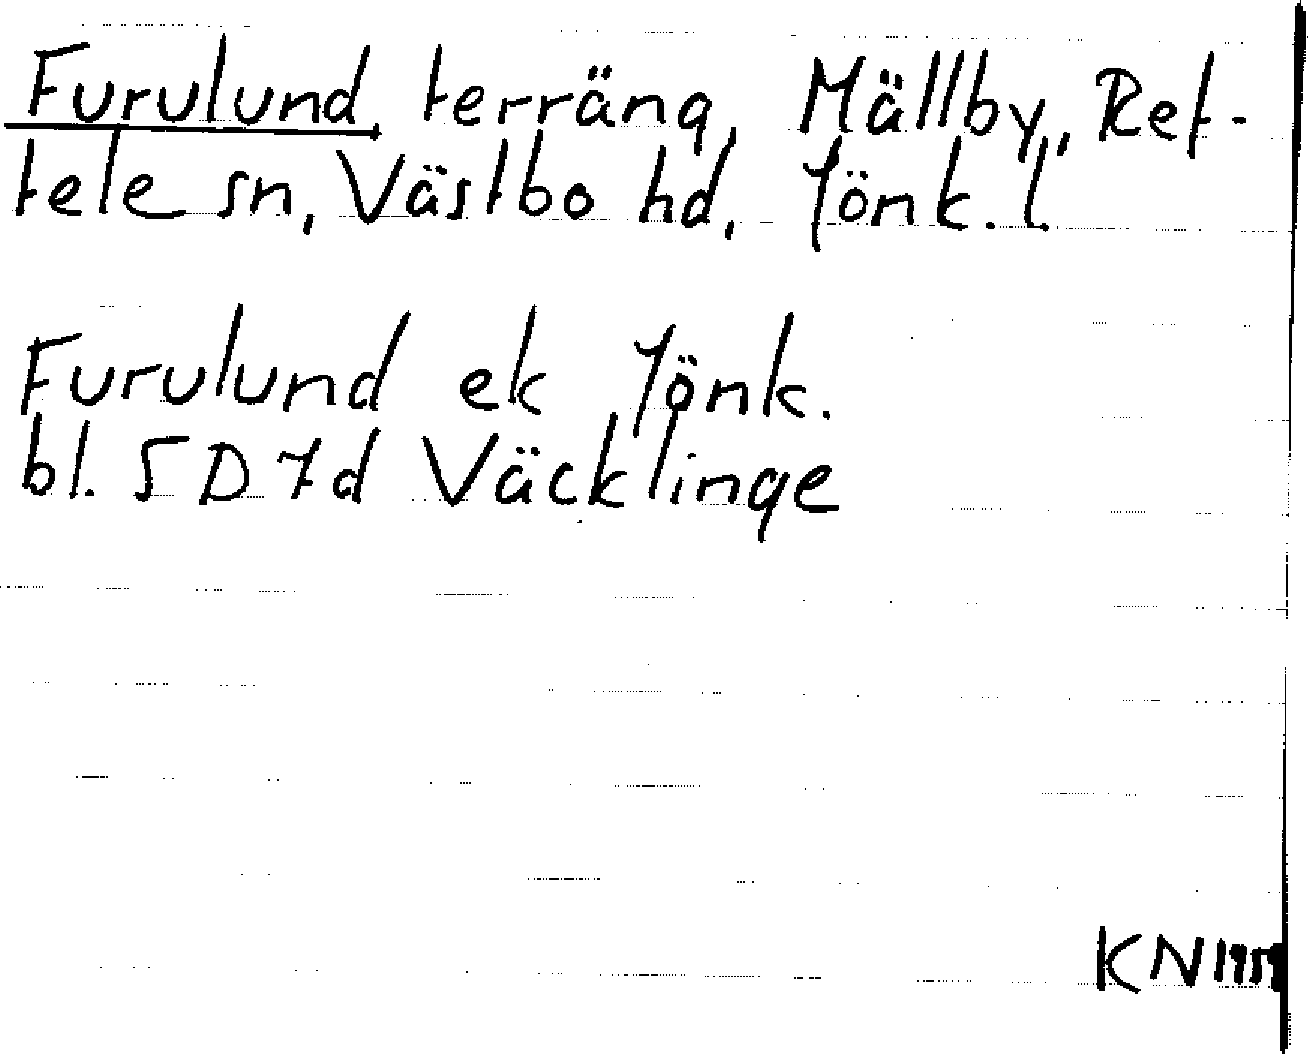 Furulund terräng, Mällby, Ref-
tele sn, Västbo hd, Jönk. l.
Furulund ek Jönk.
bl. 5D7d Väcklinge
KN 1959